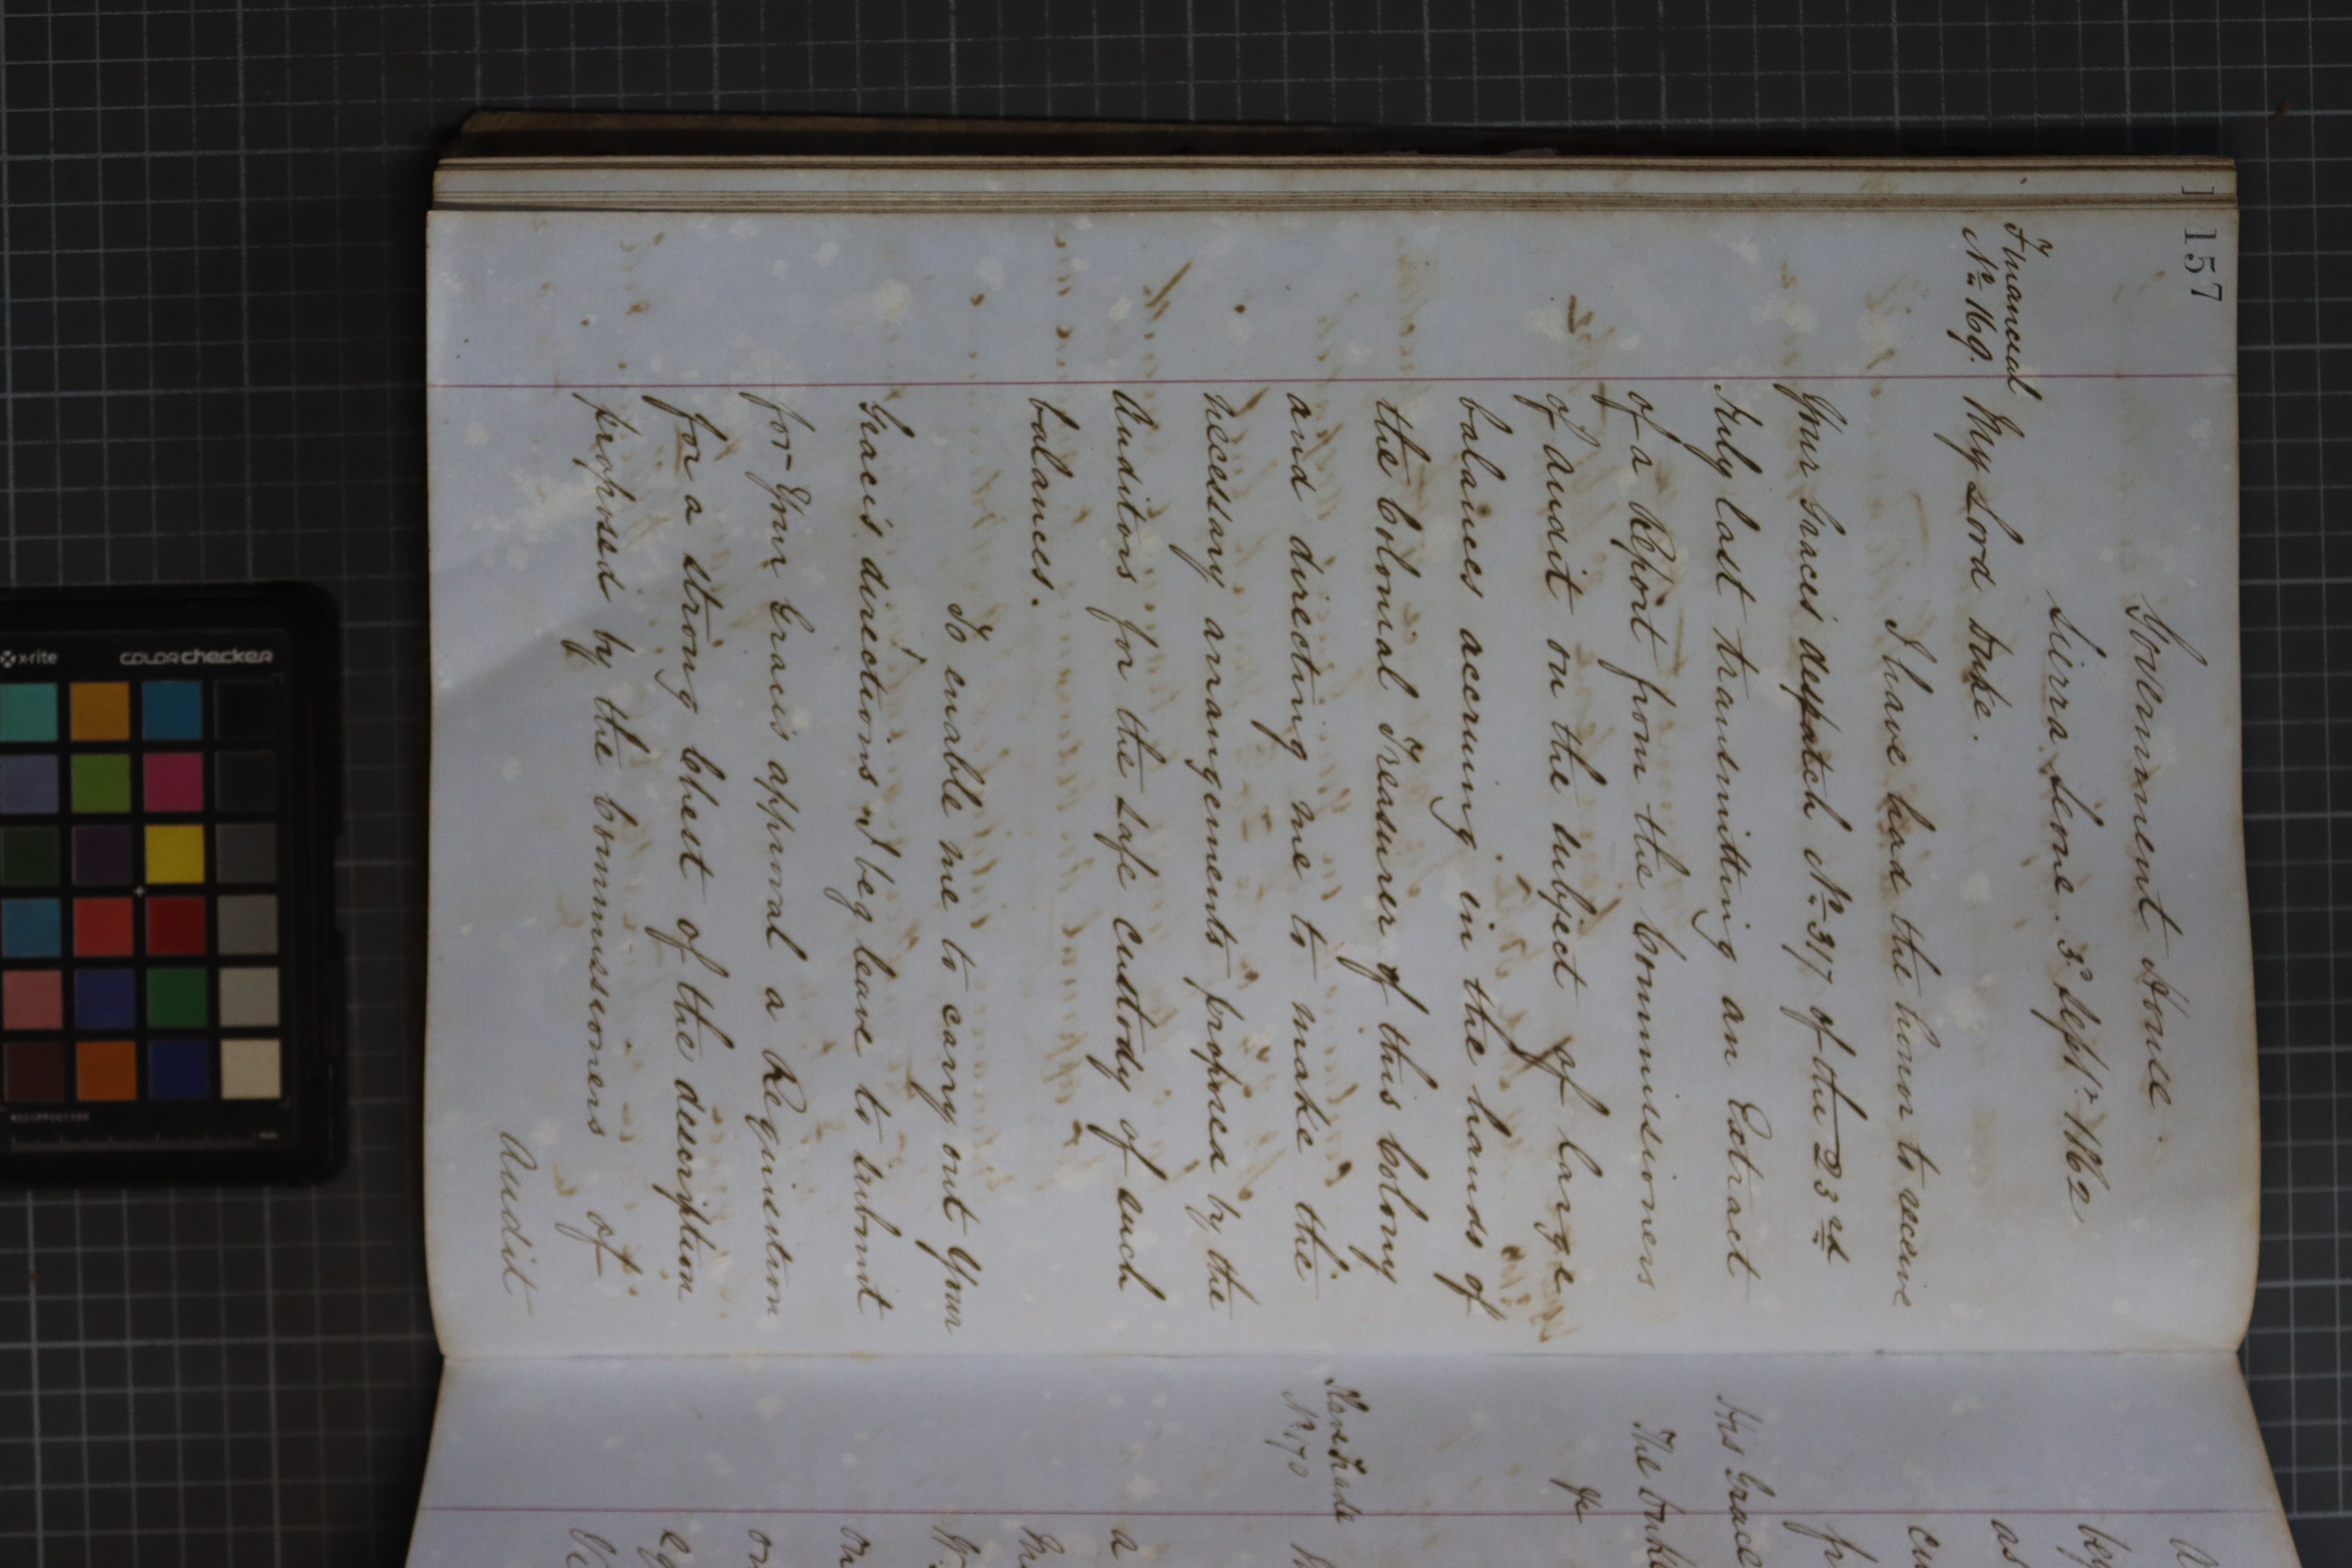 157
Government House.
Sierra Leone. 3 Septr. 1862
Financial
No. 169.
My Lord Duke.
I have had the honor to receive
Your Graces despatch No. 317 of the 23rd
July last transmitting an Extract
of a Report from the Commissioners
of audit on the subject of large
balances accruing in the hands of
the Colonial Treasurer of this Colony
and directing me to make the
necessary arrangements proposed by the
Auditors for the safe custody of such
balances.
To enable me to carry out Your
Grace's directions I beg leave to submit
for Your Graces approval a Requisition
for a strong Chest of the description
proposed by the Commissioners of
Audit
as
His Grace
The Duke
Slave Trade
No. 170
a
x-rite
colorchecker